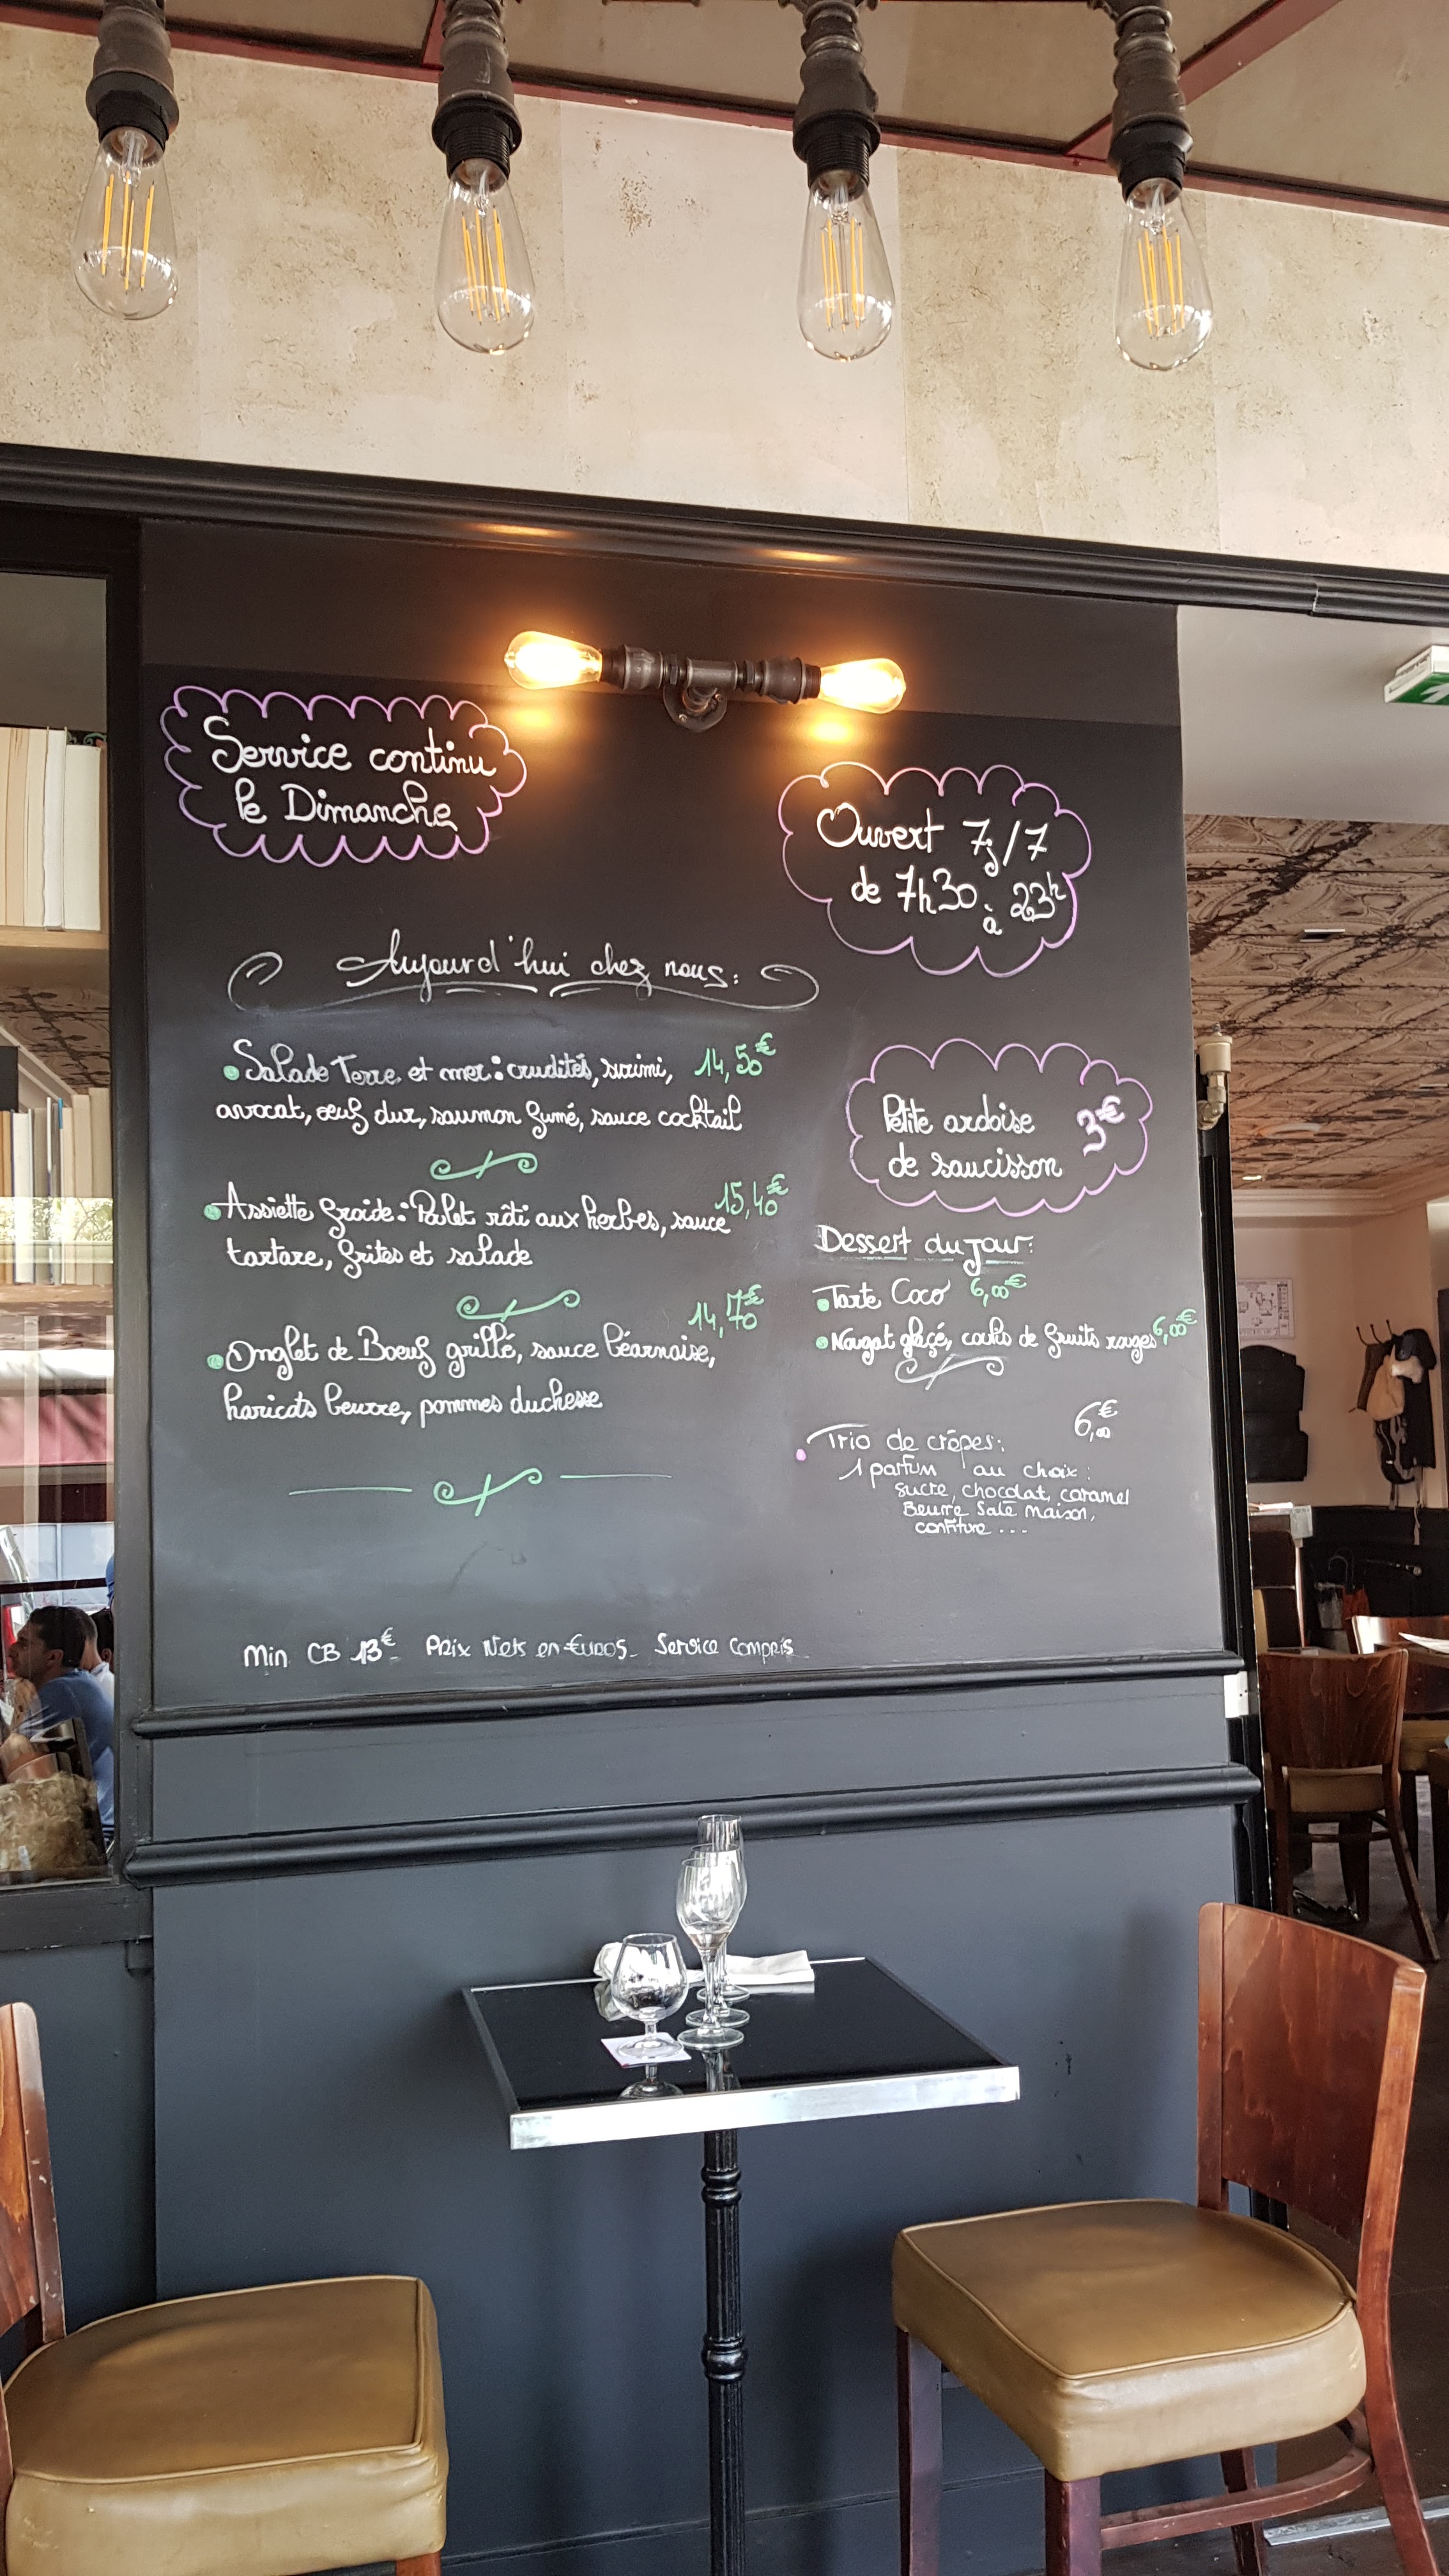 Service continu
le Dimanche
Ouvert 7j/7
de 7h30 à 23h
Aujourd'hui chez nous:
• Salade Terre et mer: crudités, surimi, 14,50€
avocat, œuf dur, saumon fumé, sauce cocktail
• Assiette froide: Poulet rôti aux herbes, sauce 15,40€
tartare, frites et salade
• Onglet de Boeuf grillé, sauce béarnaise, 14,70€
haricots beurre, pommes duchesse
Petite ardoise 3€
de saucisson
Dessert du jour:
• Tarte Coco 6,00€
• Nougat glaçé, coulis de fruits rouges 6,00€
• Trio de crêpes: 6,00€
1 parfum au choix:
sucre, chocolat, caramel
Beurre Salé Maison,
confiture ...
Min CB 13€ - Prix Nets en €uros - Service Compris